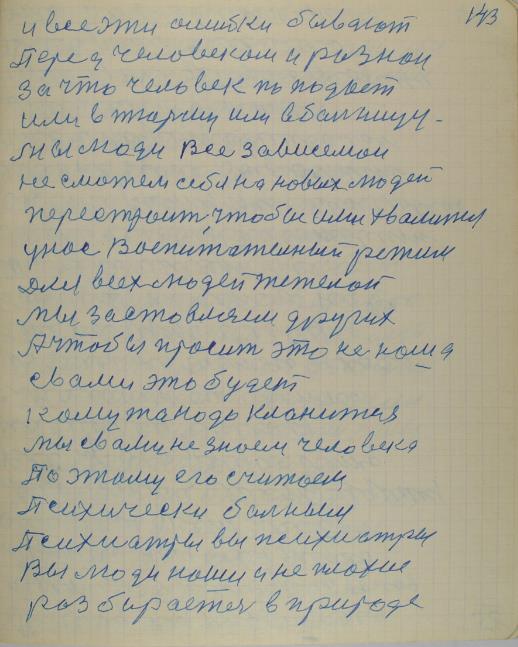 143
и все эти ошибки бывают
Перед человеком и разнои
За что человек по подает
или в тюрму или в балницу -
мы люди все зависемои
не сможем себя на новых людей
перестроит, чтобы ими хвалится
у нас Воспитателный режим
для всех людей тяжелой
мы застовляем других
А чтобы просит это не ноша
свами это будет
кому та надо клонится
мы свами не знаем человека
По этому его считаем
Психически балным
Психиатры вы психиатры
Вы люди наши и не плохие
разбираетес в природе